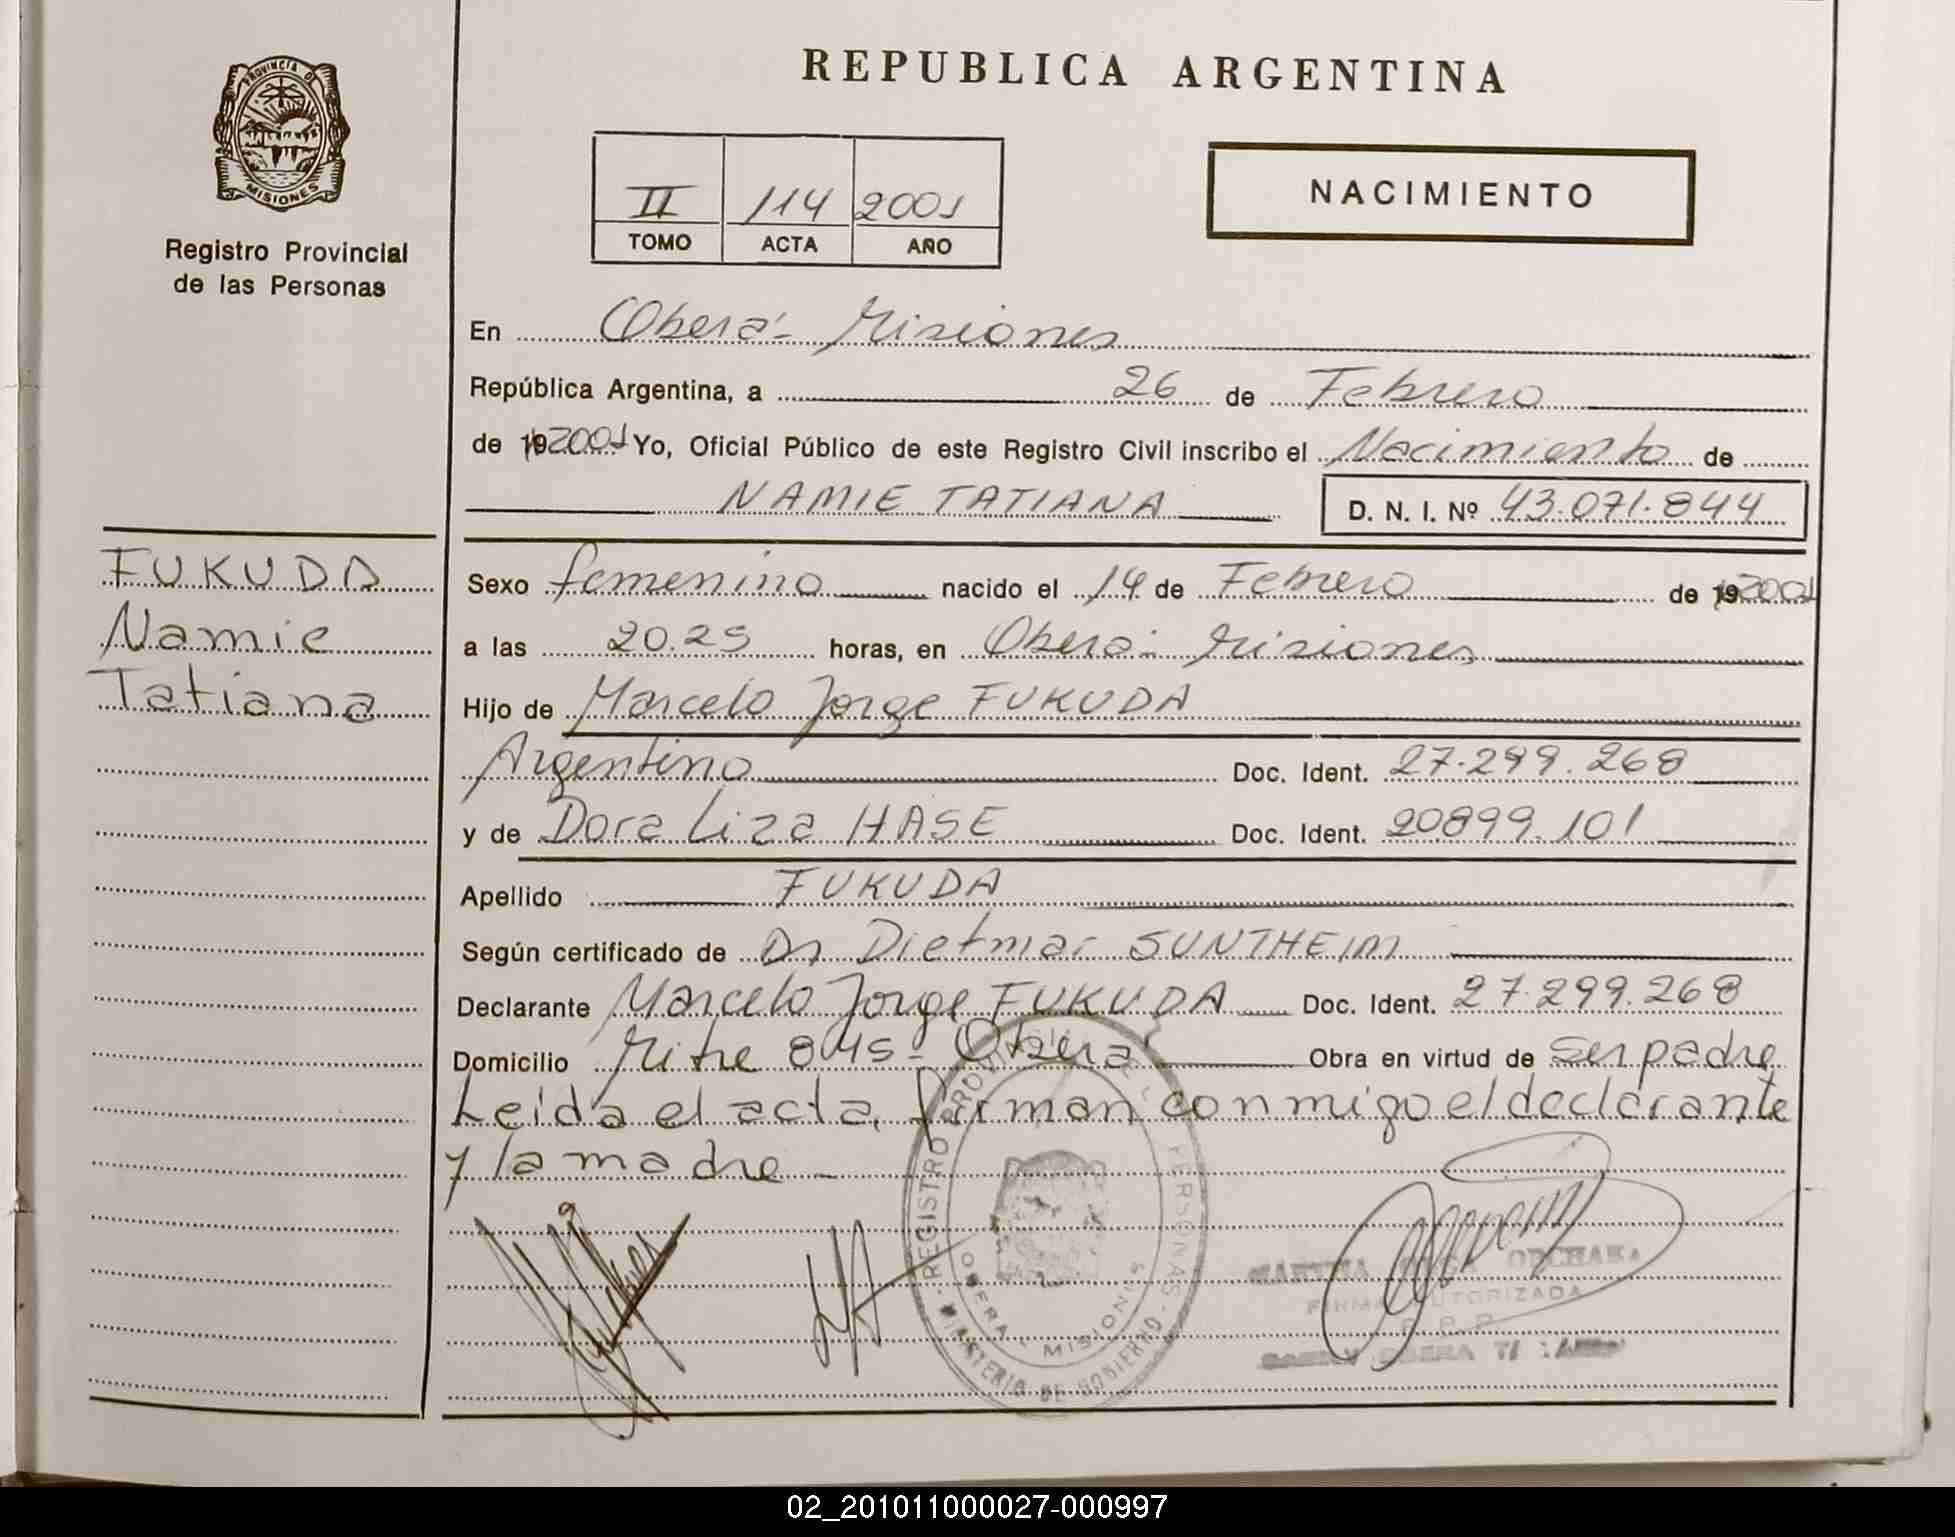 REPUBLICA ARGENTINA
PROVINCIA DE
MISIONES
Registro Provincial
de las Personas
II 114 2001
TOMO ACTA AÑO
NACIMIENTO
En Oberá - Misiones
República Argentina, a 26 de Febrero
de 19 2001 Yo, Oficial Público de este Registro Civil inscribo el Nacimiento de
NAMIE TATIANA D. N. I. Nº 43.071.844
FUKUDA
Namie
Tatiana
Sexo femenino nacido el 14 de Febrero de 19 2001
a las 20.25 horas, en Oberá - Misiones
Hijo de Marcelo Jorge FUKUDA
Argentino Doc. Ident. 27.299.268
y de Dora Liza HASE Doc. Ident. 20899.101
Apellido FUKUDA
Según certificado de Dr Dietmar SUNTHEIM
Declarante Marcelo Jorge FUKUDA Doc. Ident. 27.299.268
Domicilio Mitre 845 - Oberá Obra en virtud de ser padre
Leida el acta, firman conmigo el declarante
y la madre -
REGISTRO PROVINCIAL DE LAS PERSONAS
MINISTERIO DE GOBIERNO
OBERA - MISIONES
FIRMA AUTORIZADA
R. P. P.
02_201011000027-000997